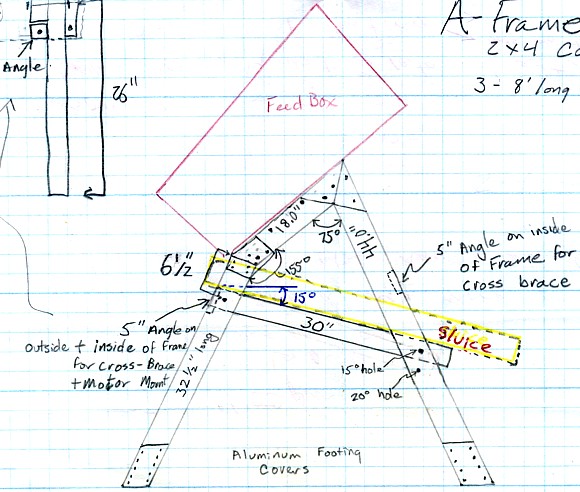 A-Frame
2x4
3 - 8' long
Angle
26"
Feed Box
18.0"
75°
44.0"
155°
6 1/2"
15°
30"
5" Angle on inside
of Frame for
cross brace
5" Angle on
outside + inside of Frame
for Cross-Brace
+ Motor Mount
32 1/2" long
Sluice
15° hole
20° hole
Aluminum Footing
Covers